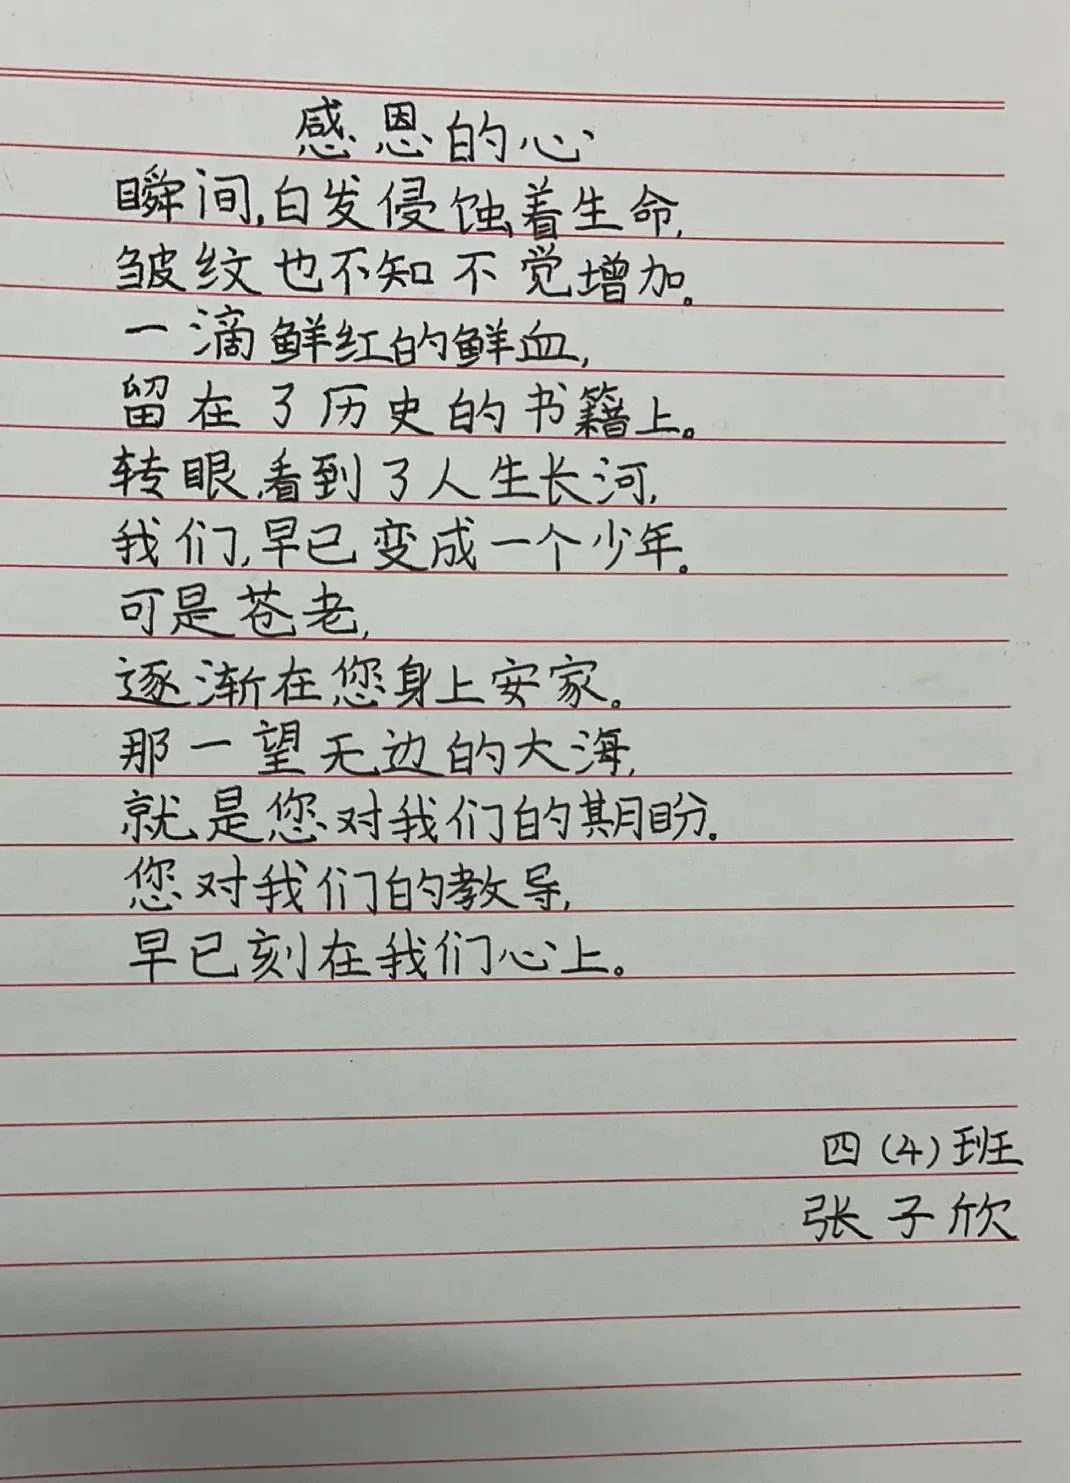 感恩的心
瞬间,白发侵蚀着生命,
皱纹也不知不觉增加。
一滴鲜红的鲜血,
留在了历史的书籍上。
转眼,看到了人生长河,
我们,早已变成一个少年。
可是苍老,
逐渐在您身上安家。
那一望无边的大海,
就是您对我们的期盼。
您对我们的教导,
早已刻在我们心上。
四(4)班
张子欣